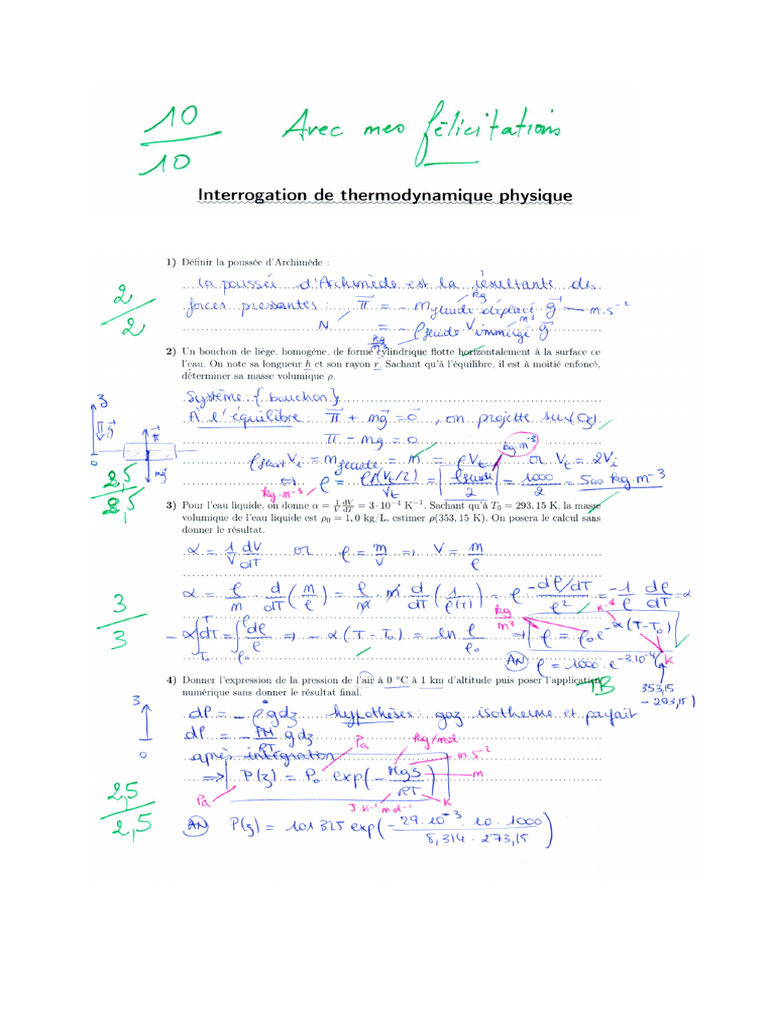 10/10 Avec mes félicitations
Interrogation de thermodynamique physique
1) Définir la poussée d'Archimède :
La poussée d'Archimède est la résultante des
kg
forces pressantes : π⃗ = - m fluide déplacé g⃗ m.s⁻²
N = - ρ fluide V immergé g⃗
m³
kg/m³
2/2
2) Un bouchon de liège, homogène, de forme cylindrique flotte horizontalement à la surface ce
l'eau. On note sa longueur h et son rayon r. Sachant qu'à l'équilibre, il est à moitié enfoncé,
déterminer sa masse volumique ρ.
Système {bouchon}
À l'équilibre : π⃗ + mg⃗ = 0⃗, on projette sur (Oz)
π - mg = 0
kg.m⁻³
ρfluide Vi = mfluide = m = ρVt or Vt = 2Vi
⟺ ρ = ρfl(Vt/2)/Vt = ρfluide/2 = 1000/2 = 500 kg.m⁻³
kg.m⁻³
z
g⃗
π⃗
mg⃗
0
2,5/2,5
3) Pour l'eau liquide, on donne α = 1/V dV/dT = 3·10⁻⁴ K⁻¹. Sachant qu'à T₀ = 293,15 K, la masse
volumique de l'eau liquide est ρ₀ = 1,0 kg/L, estimer ρ(353,15 K). On posera le calcul sans
donner le résultat.
α = 1/V dV/dT or ρ = m/V ⟹ V = m/ρ
α = ρ/m d/dT (m/ρ) = ρ/m m d/dT (1/ρ(T)) = ρ -dρ/dT/ρ² = -1/ρ dρ/dT = α
kg/m³ K⁻¹
-α∫T₀^T dT = ∫ρ₀^ρ dρ/ρ ⟹ -α(T-T₀) = ln ρ/ρ₀ ⟹ ρ = ρ₀e^-α(T-T₀)
K
AN ρ = 1000.e^-3.10⁻⁴(353,15 - 293,15)
3/3
TB
4) Donner l'expression de la pression de l'air à 0 °C à 1 km d'altitude puis poser l'application
numérique sans donner le résultat final.
z
0
dP = - ρgdz hypothèses : gaz isotherme et parfait
dP = - PM/RT gdz
Pa kg/mol
après intégration m.s⁻²
⟹ P(z) = P₀ exp(- Mgz/RT) m
Pa J.K⁻¹mol⁻¹ K
AN P(z) = 101325 exp(- 29.10⁻³.10.1000/8,314.273,15)
2,5/2,5